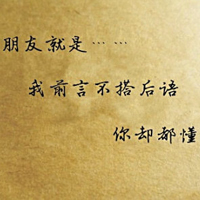 朋友就是……
我前言不搭后语
你却都懂